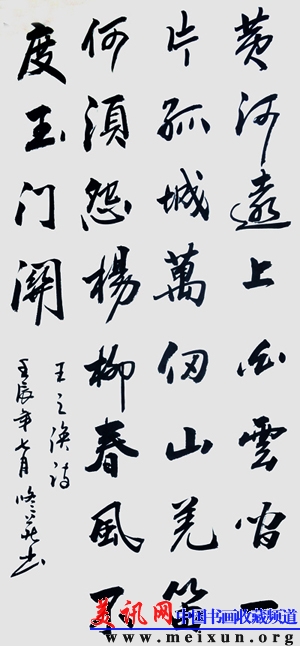 黄河遠上白雲间一
片孤城萬仞山羌笛
何須怨楊柳春風不
度玉门關
王之涣诗
壬辰年七月 书
美讯网 中国书画收藏频道
www.meixun.org